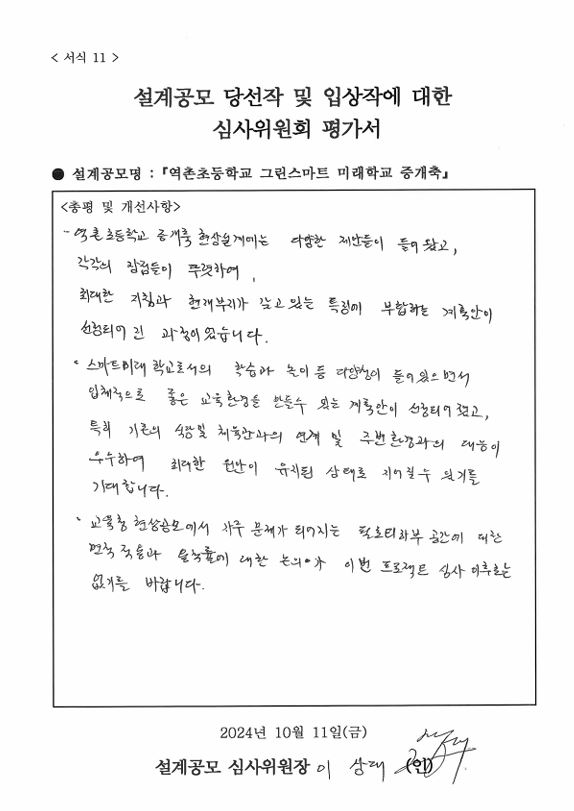 < 서식 11 >
설계공모 당선작 및 입상작에 대한
심사위원회 평가서
● 설계공모명 : 『역촌초등학교 그린스마트 미래학교 증개축』
<총평 및 개선사항>
- 역촌초등학교 증개축 현상설계에는 다양한 제안들이 들어왔고,
각각의 장점들이 뚜렷하여,
최대한 지침과 현재부지가 갖고 있는 특징에 부합하는 계획안이
선정되어진 과정이었습니다.
• 스마트미래학교로서의 학습과 놀이 등 다양성이 들어있으면서
입체적으로 좋은 교육환경을 만들수 있는 계획안이 선정되어졌고,
특히 기존의 식당및 체육관과의 연계 및 주변환경과의 대응이
우수하여 최대한 원안이 유지된 상태로 지어질수 있기를
기대합니다.
• 교육청 현상공모에서 자주 문제가 되어지는 필로티하부 공간에 대한
면적 적용과 용적률에 대한 논의가 이번 프로젝트 심사 이후로는
없기를 바랍니다.
2024년 10월 11일(금)
설계공모 심사위원장 이 상대 (인)